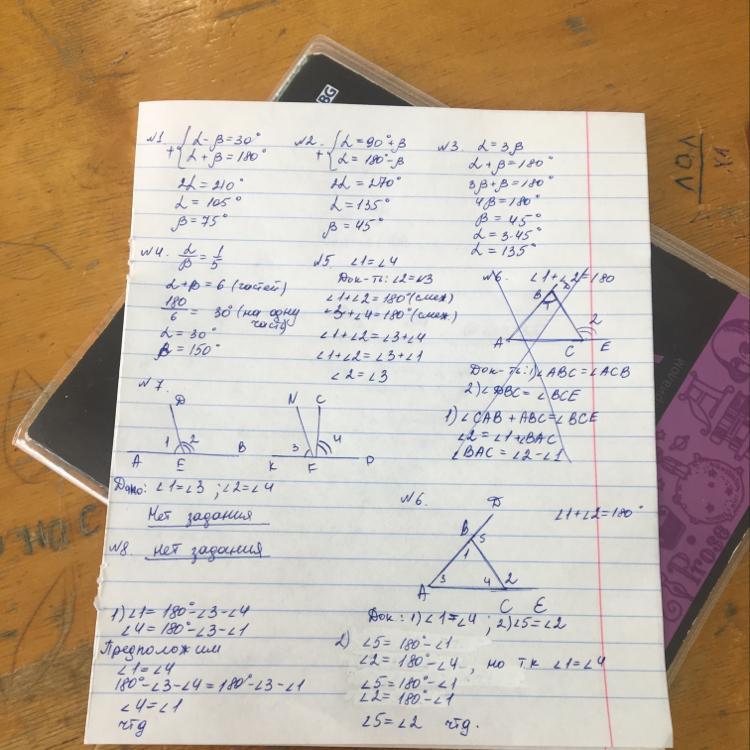 №1. + { α-β=30°
α+β=180°
2α=210°
α=105°
β=75°
№2. + { α=90°+β
α=180°-β
2α=270°
α=135°
β=45°
№3. α=3β
α+β=180°
3β+β=180°
4β=180°
β=45°
α=3·45°
α=135°
№4. α/β = 1/5
α+β=6 (частей)
180/6 = 30° (на одну часть)
α=30°
β=150°
№5. ∠1=∠4
Док-ть: ∠2=∠3
∠1+∠2=180° (смеж)
∠3+∠4=180° (смеж)
∠1+∠2=∠3+∠4
∠1+∠2=∠3+∠1
∠2=∠3
№6. ∠1+∠2=180
B 1 2
A C E
Док-ть: 1) ∠ABC=∠ACB
2) ∠DBC=∠BCE
1) ∠CAB+ABC=∠BCE
∠2=∠1+∠BAC
∠BAC=∠2-∠1
№7
D N C
1 2 3 4
A E B K F D
Дано: ∠1=∠3 ; ∠2=∠4
Нет задания
№8. нет задания
№6. D ∠1+∠2=180°
B 5
1
3 4 2
A C E
Док: 1) ∠1=∠4 ; 2) ∠5=∠2
1) ∠1=180°-∠3-∠4
∠4=180°-∠3-∠1
Предположим
∠1=∠4
180°-∠3-∠4=180°-∠3-∠1
∠4=∠1
чтд
2) ∠5=180°-∠1
∠2=180°-∠4 , но т.к ∠1=∠4
∠5=180°-∠1
∠2=180°-∠1
∠5=∠2 чтд.
BG
Prose